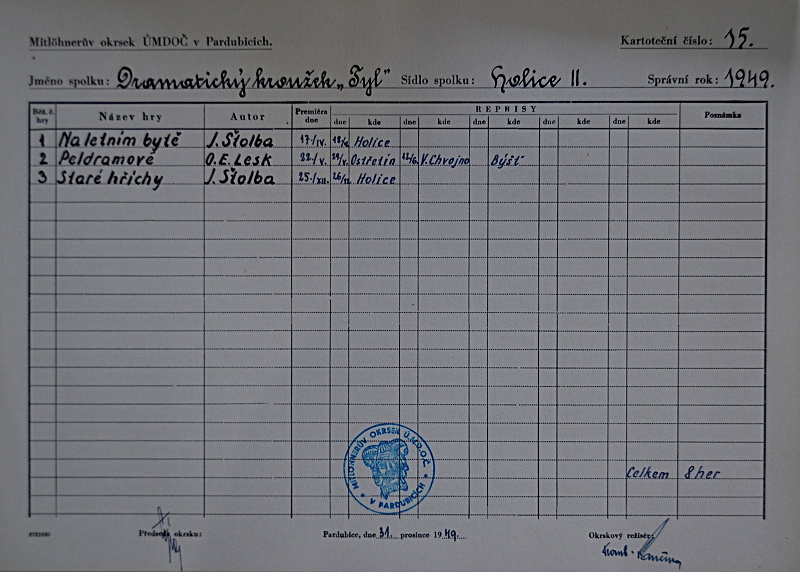 Mitlöhnerův okrsek ÚMDOČ v Pardubicích. Kartoteční číslo: 15.
Jméno spolku: Dramatický kroužek „Tyl" Sídlo spolku: Holice II. Správní rok: 1949.
Název hry Autor Premiéra dne REPRISY Poznámka
dne kde dne kde dne kde dne kde dne kde
1 Na letním bytě J. Štolba 17./IV. Holice
2 Peldramově O.E. Lesk 22./V. Ostřetín V. Chvojno Býšť
3 Staré hříchy J. Štolba 25./XII. Holice
MITLÖHNERŮV OKRSEK Ú.M.D.O.Č. V PARDUBICÍCH
Celkem 8 her
Předseda okrsku: Pardubice, dne 31. prosince 1949. Okrskový režisér: